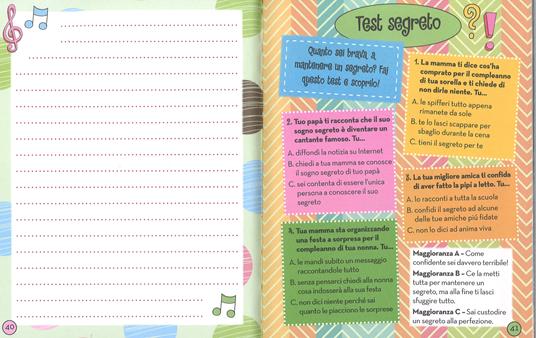 Test segreto
Quanto sei brava a
mantenere un segreto? Fai
questo test e scoprilo!
1. La mamma ti dice cos'ha
comprato per il compleanno
di tua sorella e ti chiede di
non dirle niente. Tu...
A. le spifferi tutto appena
rimanete da sole
B. te lo lasci scappare per
sbaglio durante la cena
C. tieni il segreto per te
2. Tuo papà ti racconta che il suo
sogno segreto è diventare un
cantante famoso. Tu...
A. diffondi la notizia su Internet
B. chiedi a tua mamma se conosce
il sogno segreto di tuo papà
C. sei contenta di essere l'unica
persona a conoscere il suo
segreto
3. La tua migliore amica ti confida
di aver fatto la pipì a letto. Tu...
A. lo racconti a tutta la scuola
B. confidi il segreto ad alcune
delle tue amiche più fidate
C. non lo dici ad anima viva
4. Tua mamma sta organizzando
una festa a sorpresa per il
compleanno di tua nonna. Tu...
A. le mandi subito un messaggio
raccontandole tutto
B. senza pensarci chiedi alla nonna
cosa indosserà alla sua festa
C. non dici niente perché sai
quanto le piacciono le sorprese
Maggioranza A – Come
confidente sei davvero terribile!
Maggioranza B – Ce la metti
tutta per mantenere un
segreto, ma alla fine ti lasci
sfuggire tutto.
Maggioranza C – Sai custodire
un segreto alla perfezione.
40
41